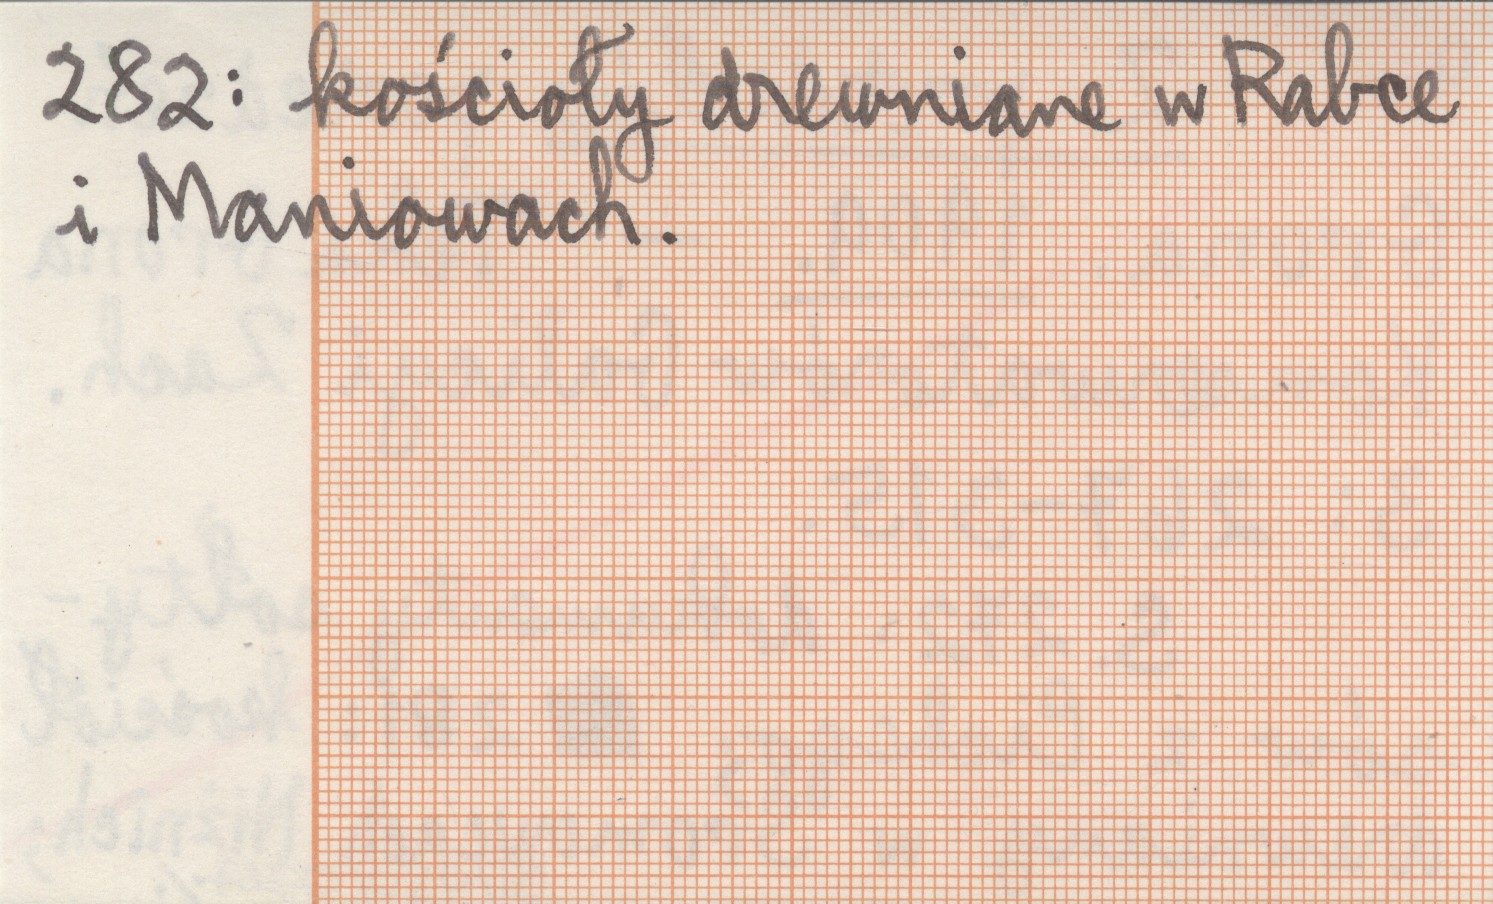 282: kościoły drewniane w Rabce
i Maniowach.